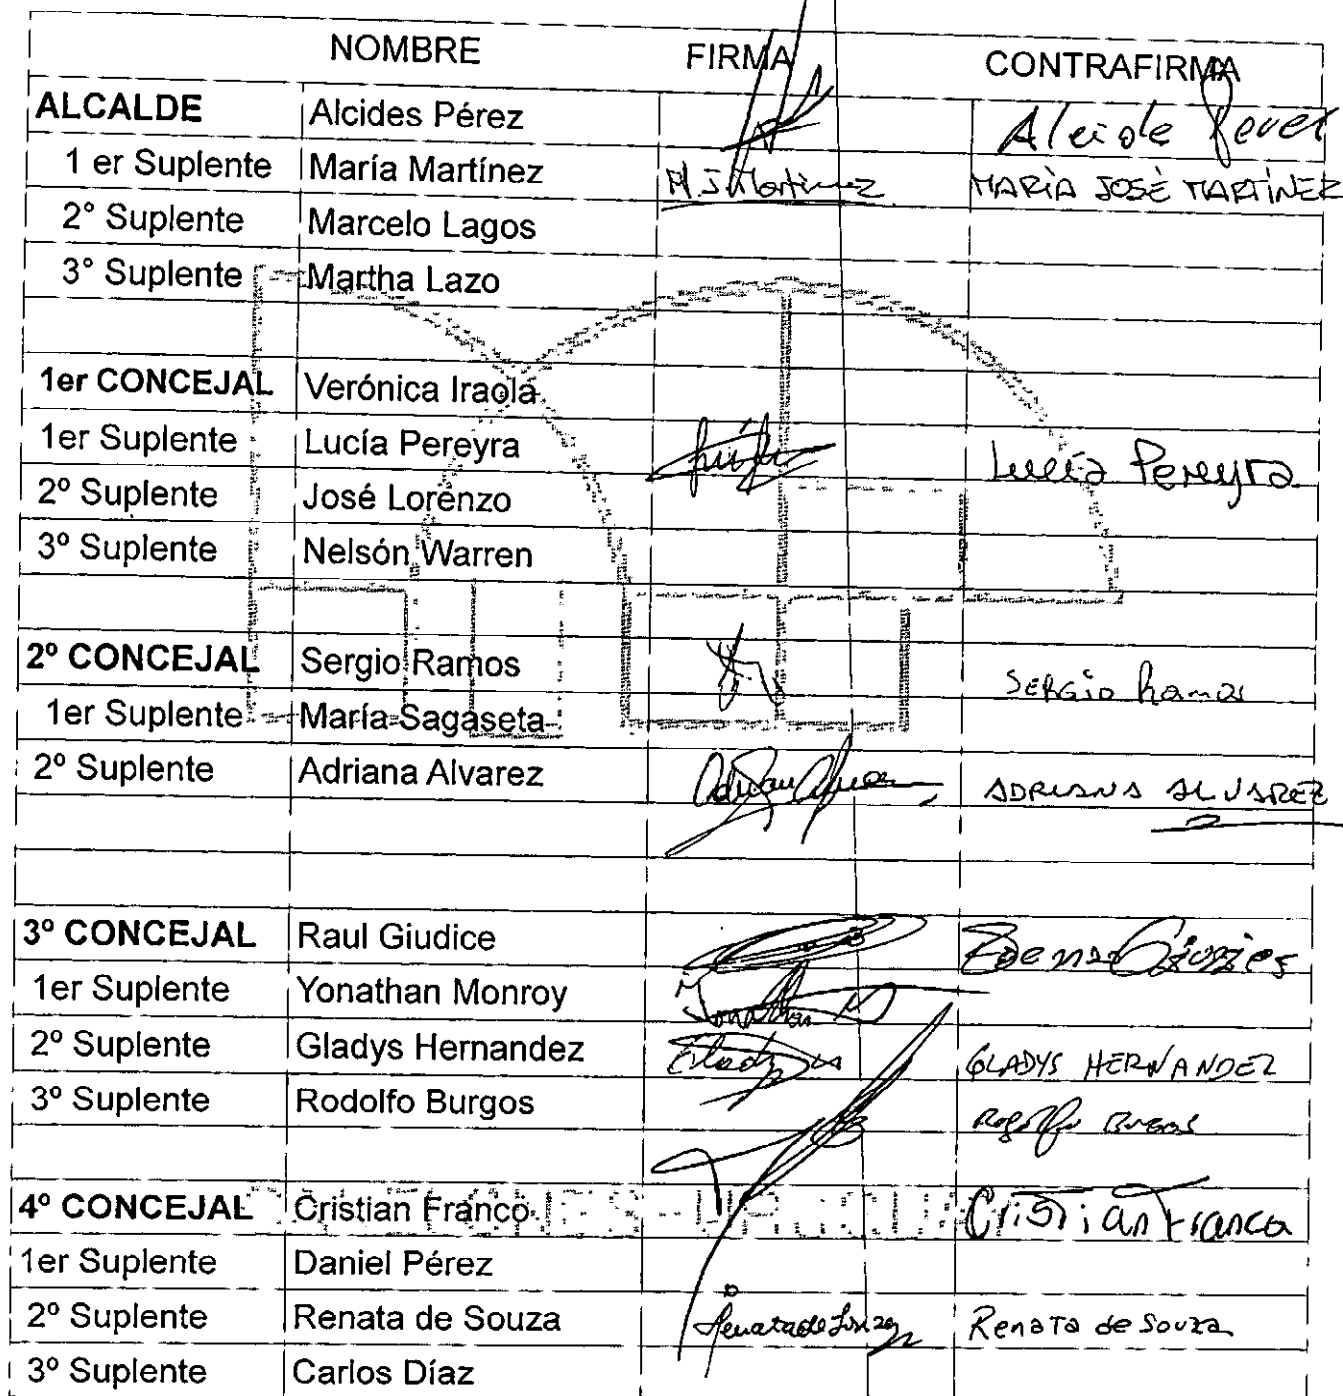 NOMBRE FIRMA CONTRAFIRMA
ALCALDE Alcides Pérez Alcide Perez
1 er Suplente María Martínez M J Martinez MARÍA JOSÉ MARTÍNEZ
2° Suplente Marcelo Lagos
3° Suplente Martha Lazo
1er CONCEJAL Verónica Iraola
1er Suplente Lucía Pereyra Lucía Pereyra
2º Suplente José Lorenzo
3º Suplente Nelsón Warren
2º CONCEJAL Sergio Ramos SERGio Ramos
1er Suplente María Sagaseta
2º Suplente Adriana Alvarez ADRIANA ALVAREZ
3º CONCEJAL Raul Giudice
1er Suplente Yonathan Monroy Yonathan M
2º Suplente Gladys Hernandez Gladys GLADYS HERNANDEZ
3º Suplente Rodolfo Burgos Rodolfo Burgos
4º CONCEJAL Cristian Franco Cristian Franco
1er Suplente Daniel Pérez
2º Suplente Renata de Souza Renata de Souza Renata de Souza
3º Suplente Carlos Díaz